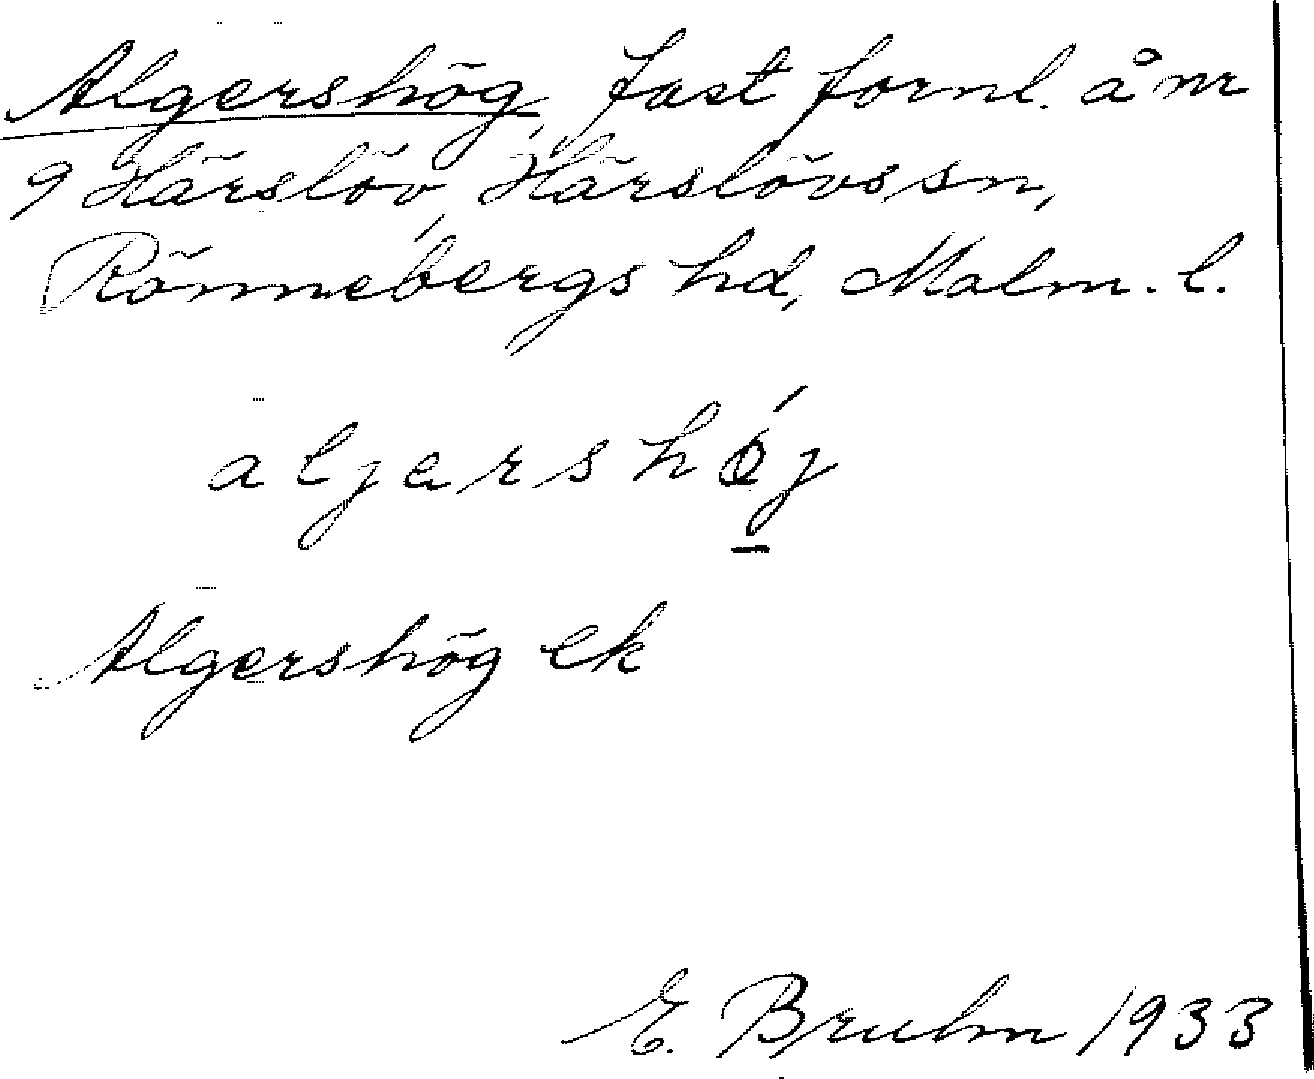 Algershög, fast fornl. å nr
9 Härslöv, Härslövs sn,
Rönnebergs hd, Malm. l.
aljarshǿj
Algershög ek
E. Bruhn 1933